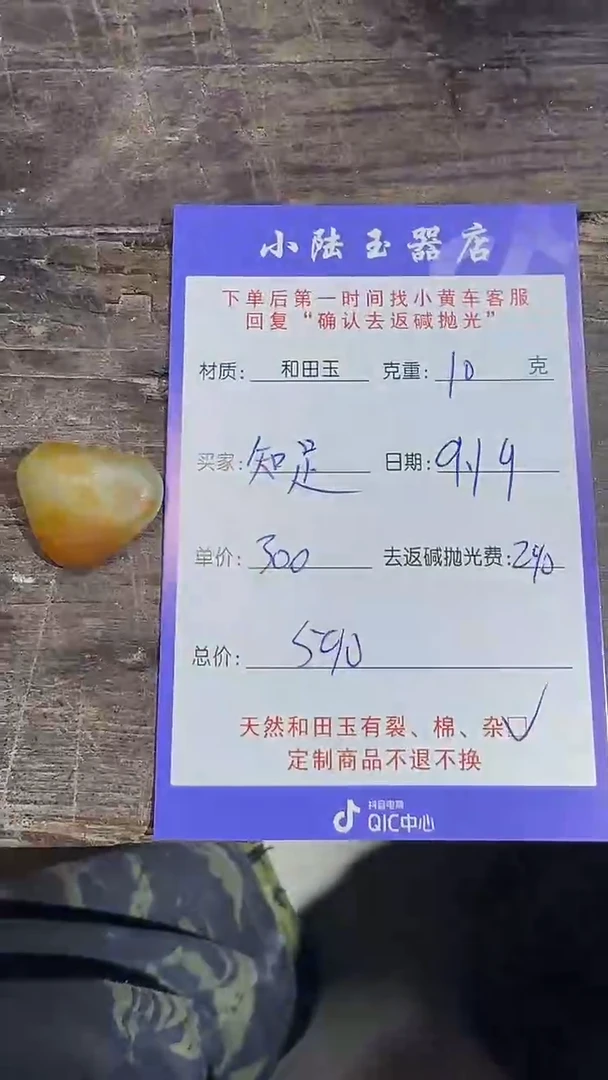 小陆玉器店
下单后第一时间找小黄车客服
回复“确认去返碱抛光”
材质：和田玉 克重：10 克
买家：知足 日期：9.19
单价：300 去返碱抛光费：290
总价：590
天然和田玉有裂、棉、杂
定制商品不退不换
抖音电商
QIC中心